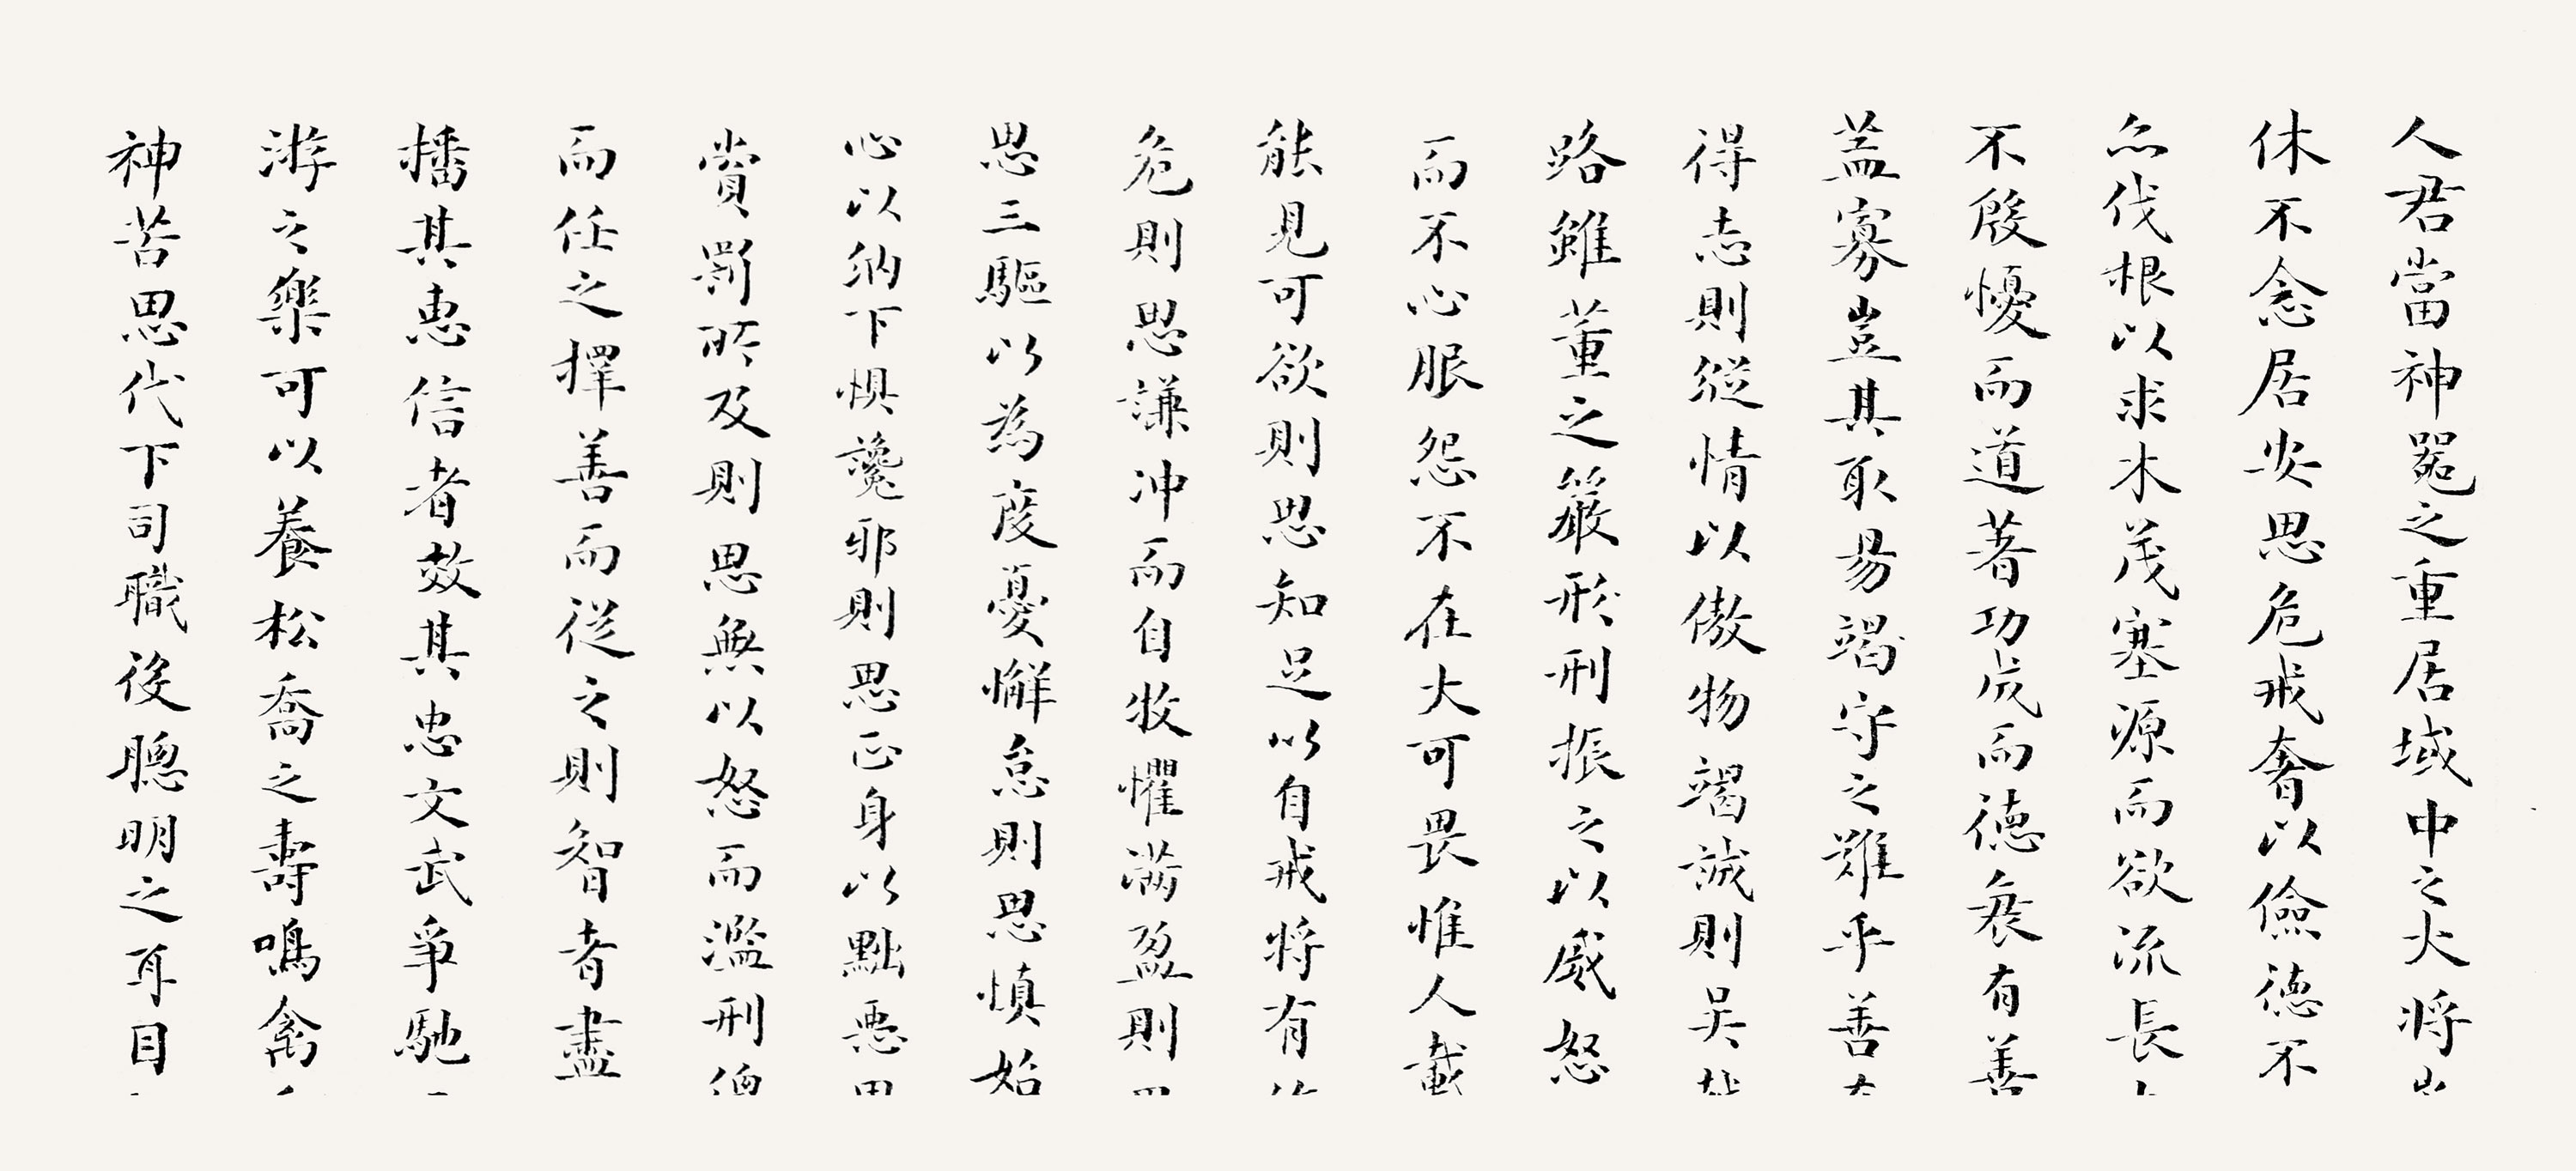 人君當神器之重居域中之大将
休不念居安思危戒奢以儉德不
亦伐根以求木茂塞源而欲流長
不殷憂而道著功成而德衰有善
蓋寡豈其取易竭守之難乎善
得志則縱情以傲物竭誠則吴
路雖董之嚴形刑振之以威怒
而不心服怨不在大可畏惟人載
能見可欲則思知足以自戒将有
危則思謙冲而自牧懼满盈則
思三驅以為度憂懈怠則思慎始
心以納下惧讒邪則思正身以黜惡
賞罰所及則思無以怒而濫刑
而任之擇善而從之則智者盡
播其惠信者效其忠文武爭馳
游之樂可以養松喬之壽鳴禽
神苦思代下司職後聰明之耳目